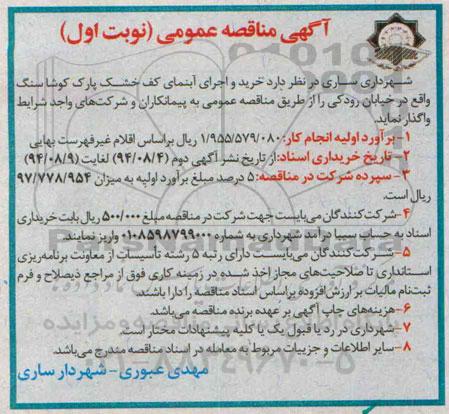 آگهی مناقصه عمومی (نوبت اول)
شهرداری ساری در نظر دارد خرید و اجرای آبنمای کف خشک پارک کوشا سنگ
واقع در خیابان رودکی را از طریق مناقصه عمومی به پیمانکاران و شرکت‌های واجد شرایط
واگذار نماید.
۱- برآورد اولیه انجام کار: ۱/۹۵۵/۵۷۹/۰۸۰ ریال براساس اقلام غیرفهرست بهایی
۲- تاریخ خریداری اسناد: از تاریخ نشر آگهی دوم (۹۴/۰۸/۴) لغایت (۹۴/۰۸/۹)
۳- سپرده شرکت در مناقصه: ۵ درصد مبلغ برآورد اولیه به میزان ۹۷/۷۷۸/۹۵۴
ریال است.
۴- شرکت‌کنندگان می‌بایست جهت شرکت در مناقصه مبلغ ۵۰۰/۰۰۰ ریال بابت خریداری
اسناد به حساب سیبا درآمد شهرداری به شماره ۰۱۰۸۵۹۸۷۹۹۰۰۰ واریز نمایند.
۵- شرکت‌کنندگان می‌بایست دارای رتبه ۵ رشته تأسیسات از معاونت برنامه‌ریزی
استانداری تا صلاحیت‌های مجاز اخذ شده در زمینه کاری فوق از مراجع ذیصلاح و فرم
ثبت‌نام مالیات بر ارزش افزوده براساس اسناد مناقصه را دارا باشند.
۶- هزینه‌های چاپ آگهی بر عهده برنده مناقصه می‌باشد.
۷- شهرداری در رد یا قبول یک یا کلیه پیشنهادات مختار است.
۸- سایر اطلاعات و جزییات مربوط به معامله در اسناد مناقصه مندرج می‌باشد.
مهدی عبوری - شهردار ساری